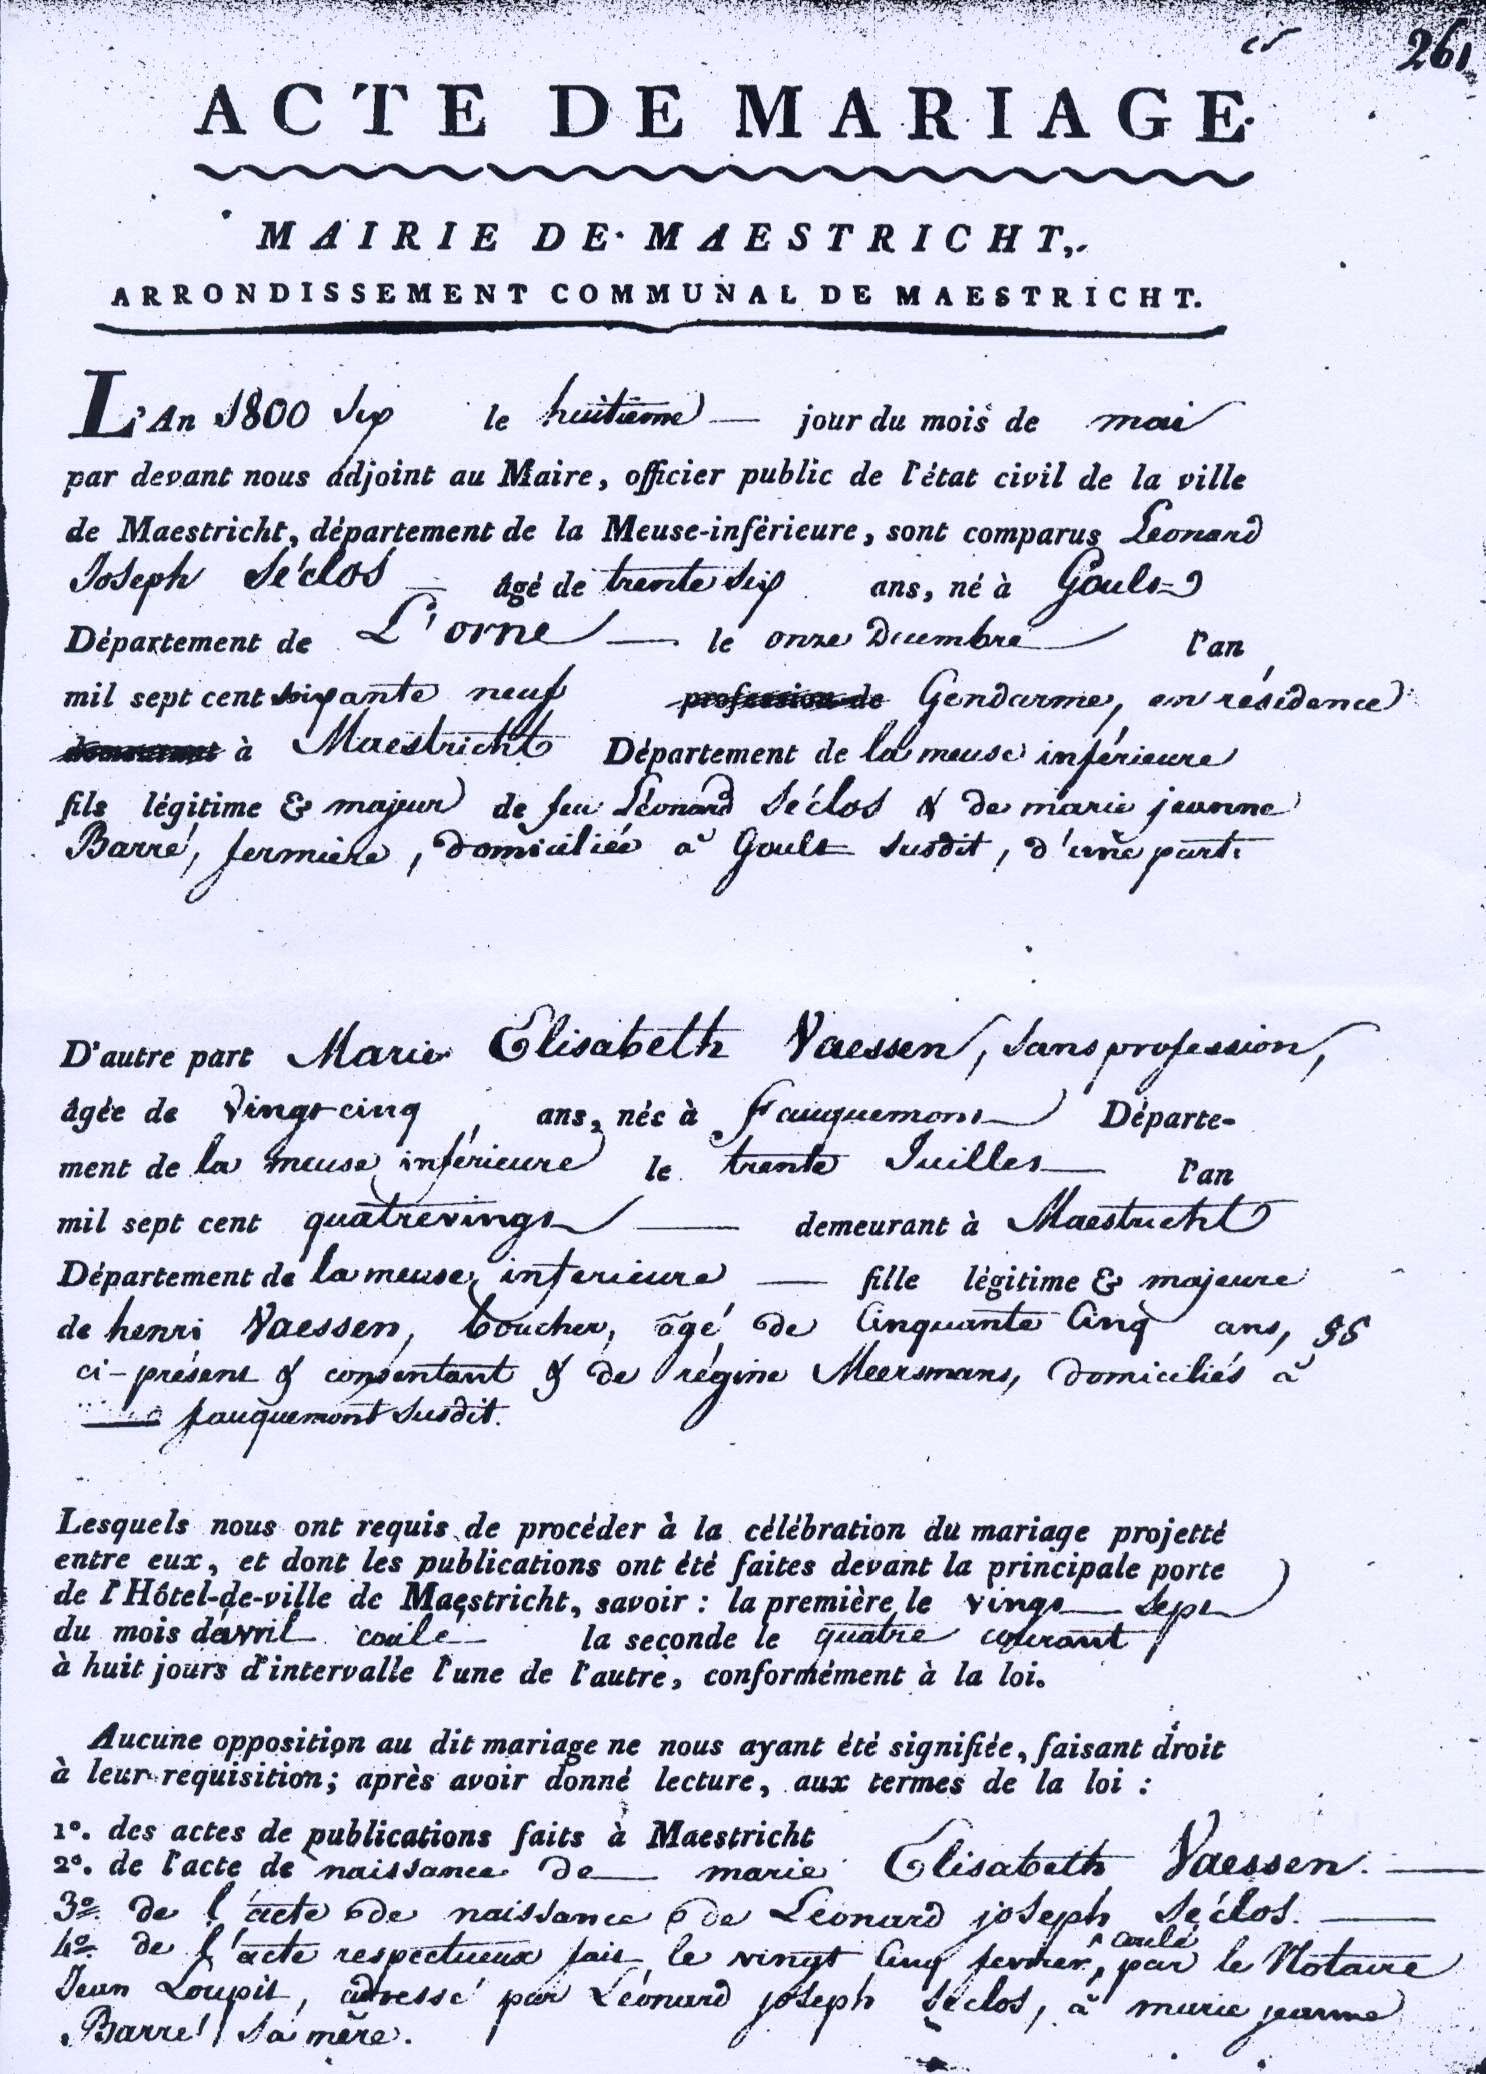 261
ACTE DE MARIAGE.
MAIRIE DE MAESTRICHT,
ARRONDISSEMENT COMMUNAL DE MAESTRICHT.
L'An 1800 Six le huitième jour du mois de mai
par devant nous adjoint au Maire, officier public de l'état civil de la ville
de Maestricht, département de la Meuse-inférieure, sont comparus Léonard
Joseph Séclos âgé de trente six ans, né à Goult
Département de L'orne le onze Decembre l'an
mil sept cent soixante neuf profession de Gendarme, en résidence
demeurant à Maestricht Département de la meuse inférieure
fils légitime & majeur de feu Léonard Séclos & de marie jeanne
Barré, fermière, domiciliée à Goult susdit, d'une part.
D'autre part Marie Elisabeth Vaessen, sans profession,
âgée de vingt cinq ans, née à fauquemont Départe-
ment de la meuse inférieure le trente Juillet l'an
mil sept cent quatrevingt demeurant à Maestricht
Département de la meuse inferieure fille légitime & majeure
de henri Vaessen, boucher, âgé de Cinquante Cinq ans,
ci-présent & consentant & de régine Meersmans, domiciliés à
fauquemont susdit.
Lesquels nous ont requis de procéder à la célébration du mariage projetté
entre eux, et dont les publications ont été faites devant la principale porte
de l'Hôtel-de-ville de Maestricht, savoir : la première le vingt Sept
du mois d'avril coulé la seconde le quatre courant
à huit jours d'intervalle l'une de l'autre, conformément à la loi.
Aucune opposition au dit mariage ne nous ayant été signifiée, faisant droit
à leur requisition; après avoir donné lecture, aux termes de la loi :
1º. des actes de publications faits à Maestricht
2º. de l'acte de naissance de marie Elisabeth Vaessen.
3º. de l'acte de naissance de Léonard joseph Séclos.
4º. de l'acte respectueux fait le vingt Cinq fevrier coulé, par le Notaire
Jean Loupit, adressé par Léonard joseph Séclos, à marie jeanne
Barré sa mère.